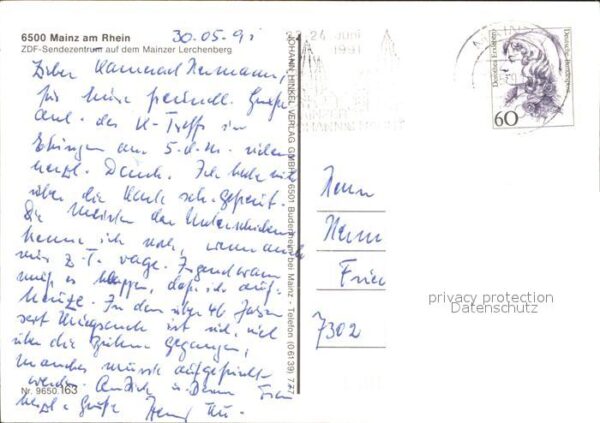 6500 Mainz am Rhein
ZDF-Sendezentrum auf dem Mainzer Lerchenberg
30.05.91
Lieber Kamerad Hermann,
für Deine freundl. Grüße
anl. des K-Treffs in
Ehingen am 5.d.M. vielen
herzl. Dank. Ich habe mich
über die Karte sehr gefreut.
Die meisten der Unterschriften
kenne ich noch, wenn auch
nur z.T. vage. Irgendwann
muß es klappen, daß ich auf-
kreuze. In den über 40 Jahren
seit Kriegsende ist viel
über die Bühne gegangen,
manches müsste aufgefrischt
werden. An Dich u. Deine Frau
herzl. Grüße
Nr. 9650.163
JOHANN HINKEL VERLAG GMBH · 6501 Budenheim bei Mainz - Telefon (06139) 77
24. Juni
1991
MAINZER
JOHANNISNACHT
Dorothea Erxleben
Deutsche Bundespost
60
Herrn
Herm
Frie
7302
privacy protection
Datenschutz